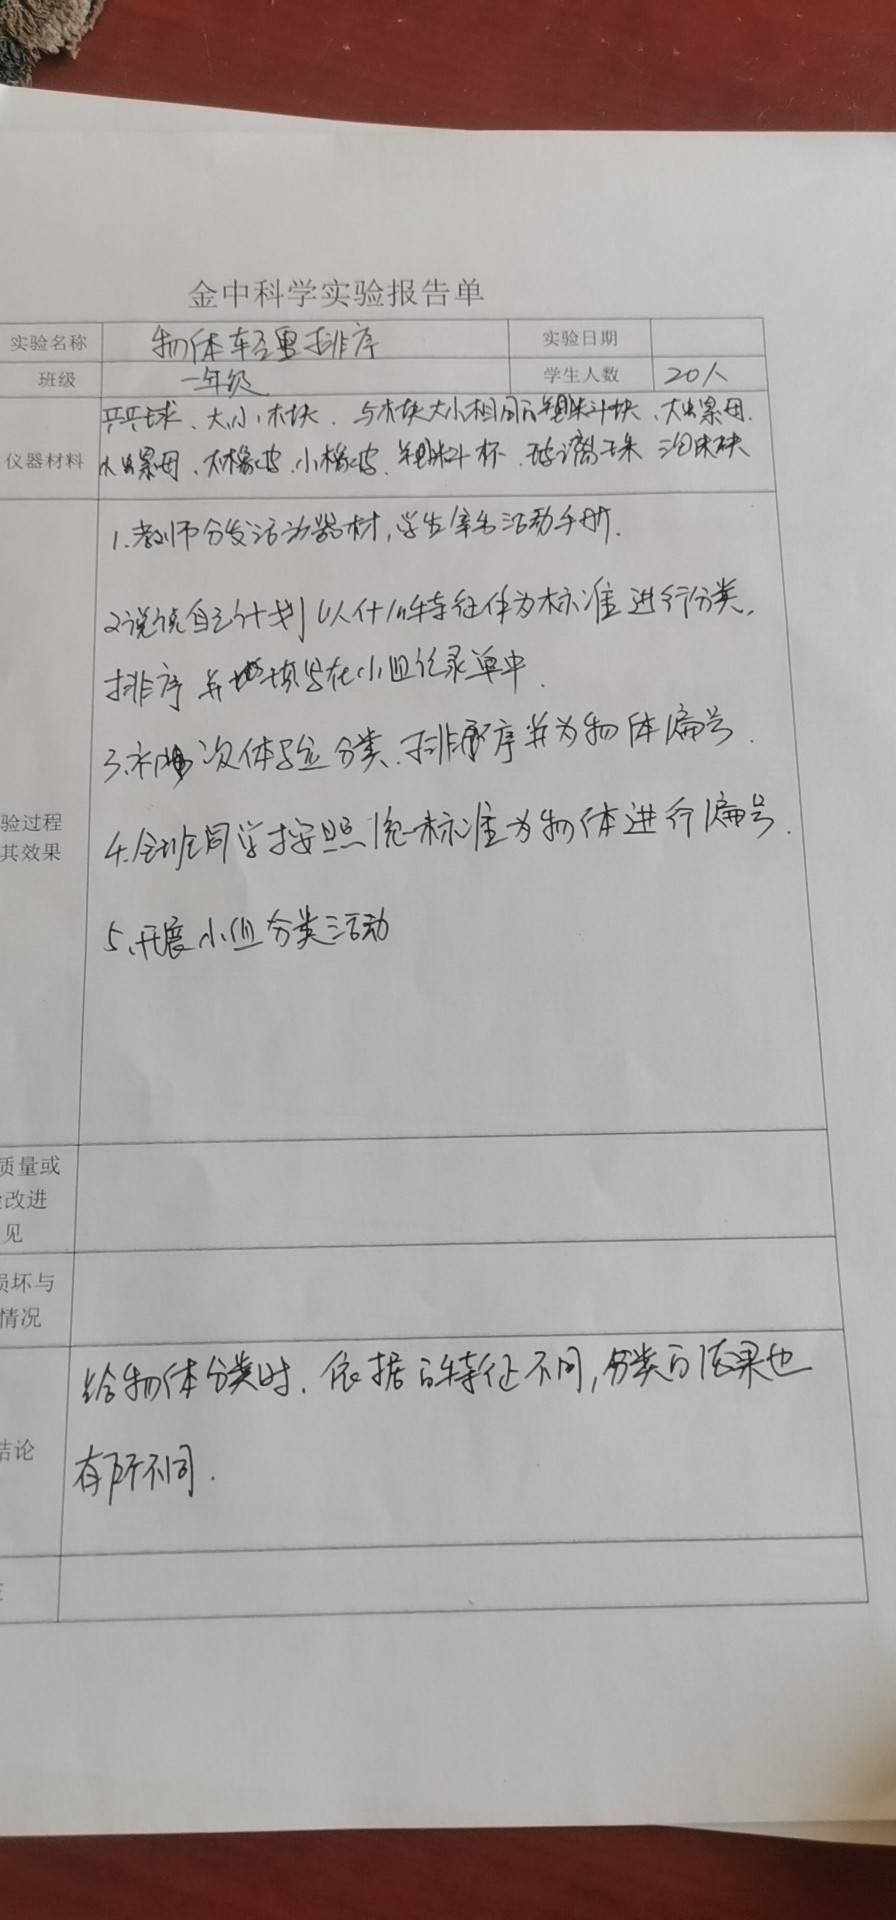 金中科学实验报告单
实验名称 物体轻重排序 实验日期
班级 一年级 学生人数 20人
乒乓球、大小木块、与木块大小相同的塑料块、大螺母、
仪器材料 小螺母、大橡皮、小橡皮、塑料杯、玻璃珠 泡沫块
1.教师分发活动器材,学生拿出活动手册.
2说说自己计划以什么特征作为标准进行分类,
排序并填写在小组记录单中.
3.初次体验分类、排序并为物体编号.
验过程
其效果
4.全班同学按照统一标准为物体进行编号.
5、开展小组分类活动
质量或
改进
见
损坏与
情况
给物体分类时,依据的特征不同,分类的结果也
结论
有所不同.